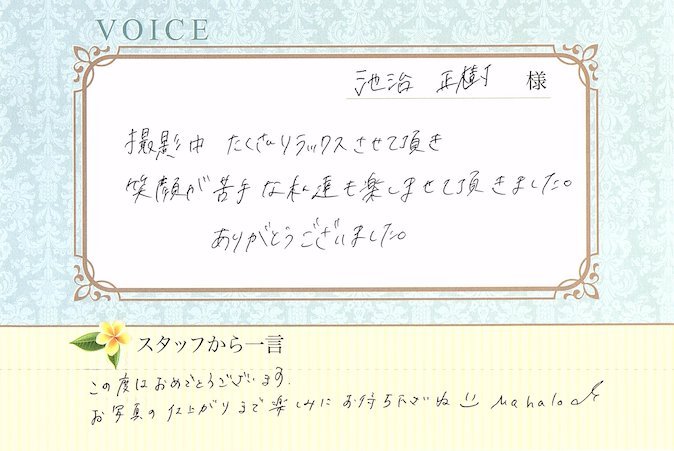 VOICE
池治 正樹 様
撮影中 たくさんリラックスさせて頂き
笑顔が苦手な私達も楽しませて頂きました。
ありがとうございました。
スタッフから一言
この度はおめでとうございます.
お写真の仕上がりまで楽しみにお待ち下さいね Mahalo